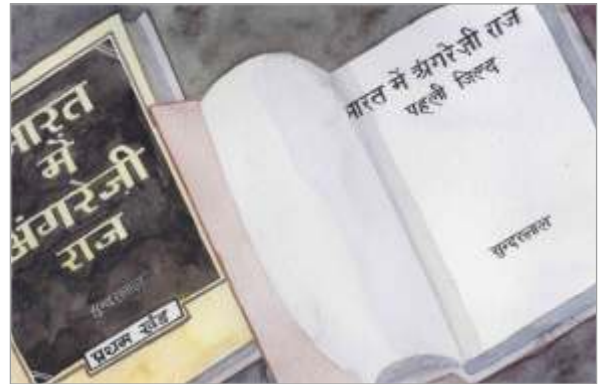 भारत
में
अंगरेज़ी
राज
सुन्दरलाल
प्रथम खंड
भारत में अंगरेज़ी राज
पहली जिल्द
सुन्दरलाल